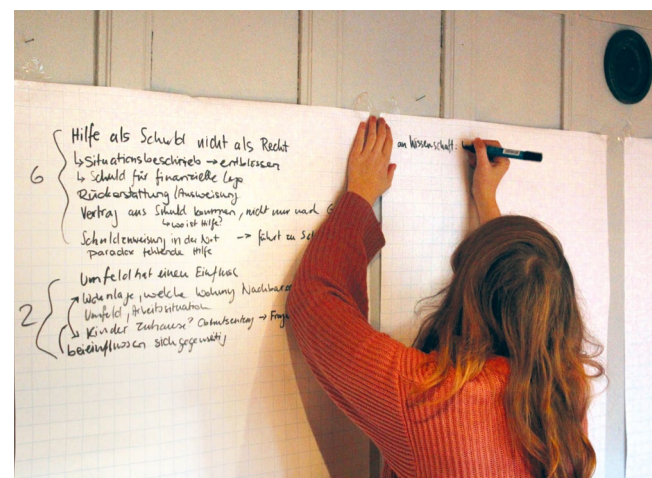 6
Hilfe als Schuld nicht als Recht
↳ Situationsbeschrieb → entblössen
↳ Schuld für finanzielle Lage
Rückerstattung / Ausweisung
Vertrag aus Schuld kommen, nicht nur nach
↳ wo ist Hilfe?
Schuldzuweisung in der Not → führt zu
paradox fehlende Hilfe
2
Umfeld hat einen Einfluss
Wohnlage, welche Wohnung Nachbarn
Umfeld, Arbeitssituation
Kinder Zuhause? →
beeinflussen sich gegenseitig
an Wissenschaft: